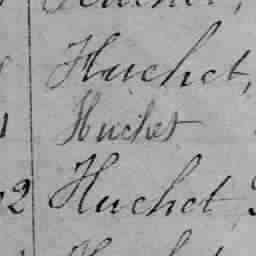 Huchet,
Huchet
2 Huchet